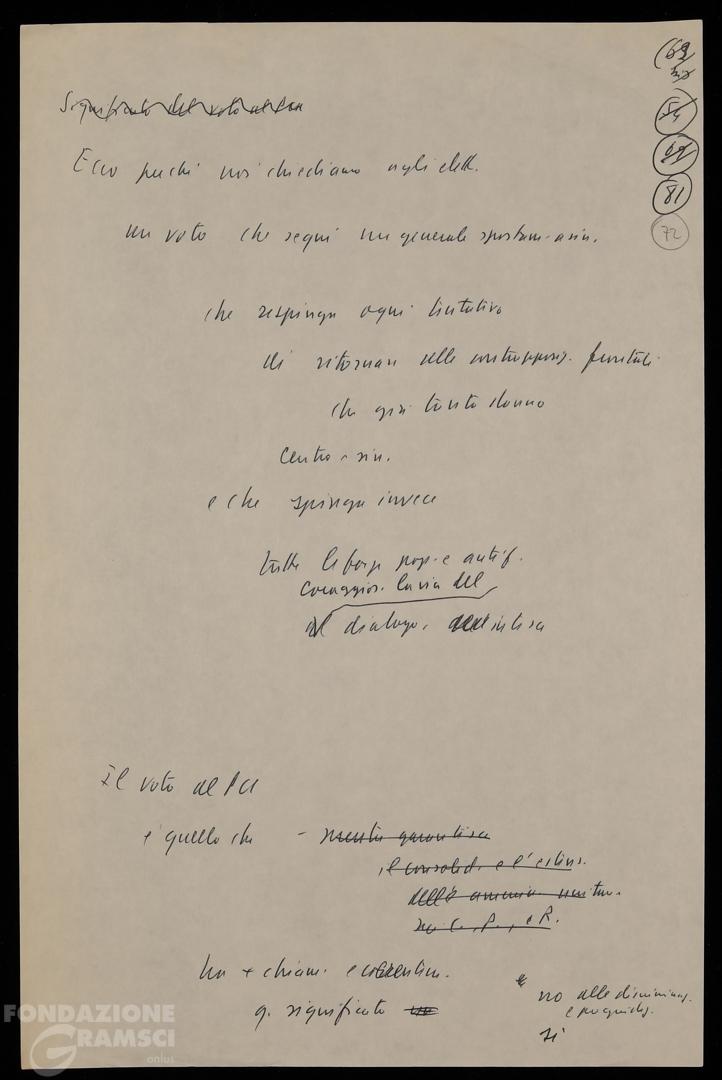 (69
bis
54
69
81
72
Significato del voto al PCI
Ecco perché noi chiediamo agli elett.
un voto che segni un generale spostam. a sin.
che respinga ogni tentativo
di ritornare alle contrapposiz. frontali
che già tanto danno
centro-sin.
e che spinga invece
tutte le forze pop. e antif.
coraggios. la via del
al dialogo, intesa
Il voto al PCI
è quello che - mentre garantisce
il consolid. e l'estens.
delle ammin. unitar.
nei C., P., e R.
ha + chiam. e
q. significato
no alle discriminaz.
e pregiudiz.
sì
FONDAZIONE
GRAMSCI
onlus